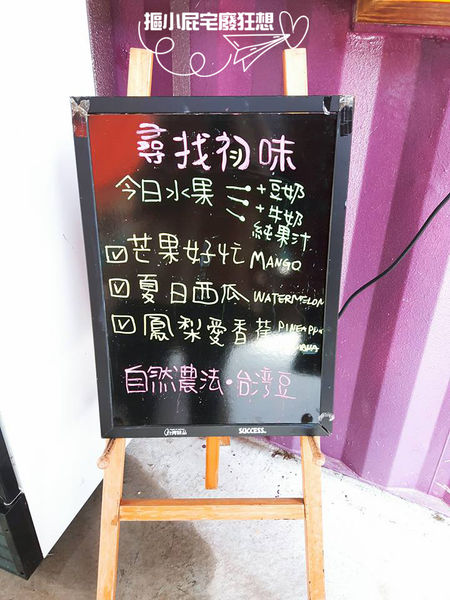 摳小屁宅廢狂想
尋找初味
今日水果 +豆奶
+牛奶
純果汁
☑ 芒果好忙 MANGO
☑ 夏日西瓜 WATERMELON
☑ 鳳梨愛香蕉 PINEAPPLE
自然農法·台灣豆
SUCCESS